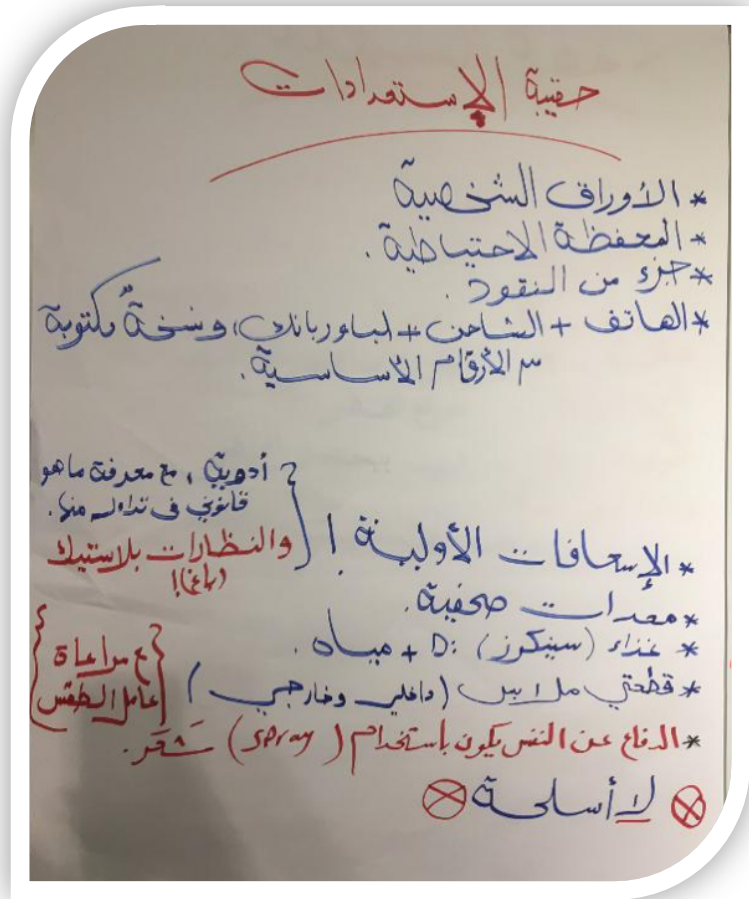 حقيبة الإستعدادات
* الأوراق الشخصية
* المحفظة الاحتياطية.
* جزء من النقود.
* الهاتف + الشاحن + الباوربانك، ونسخةٌ مكتوبة
من الأرقام الأساسية.
أدوية، مع معرفة ما هو
قانوني في تداوله منها.
* الإسعافات الأولية!
والنظارات بلاستيك
* معدات صحفية.
* غذاء (سنيكرز) :D + مياه.
* قطعتي ملابس (داخلي وخارجي)
مع مراعاة
عامل الطقس
* الدفاع عن النفس يكون بأستخدام (spray) شَعر.
لا أسلحة